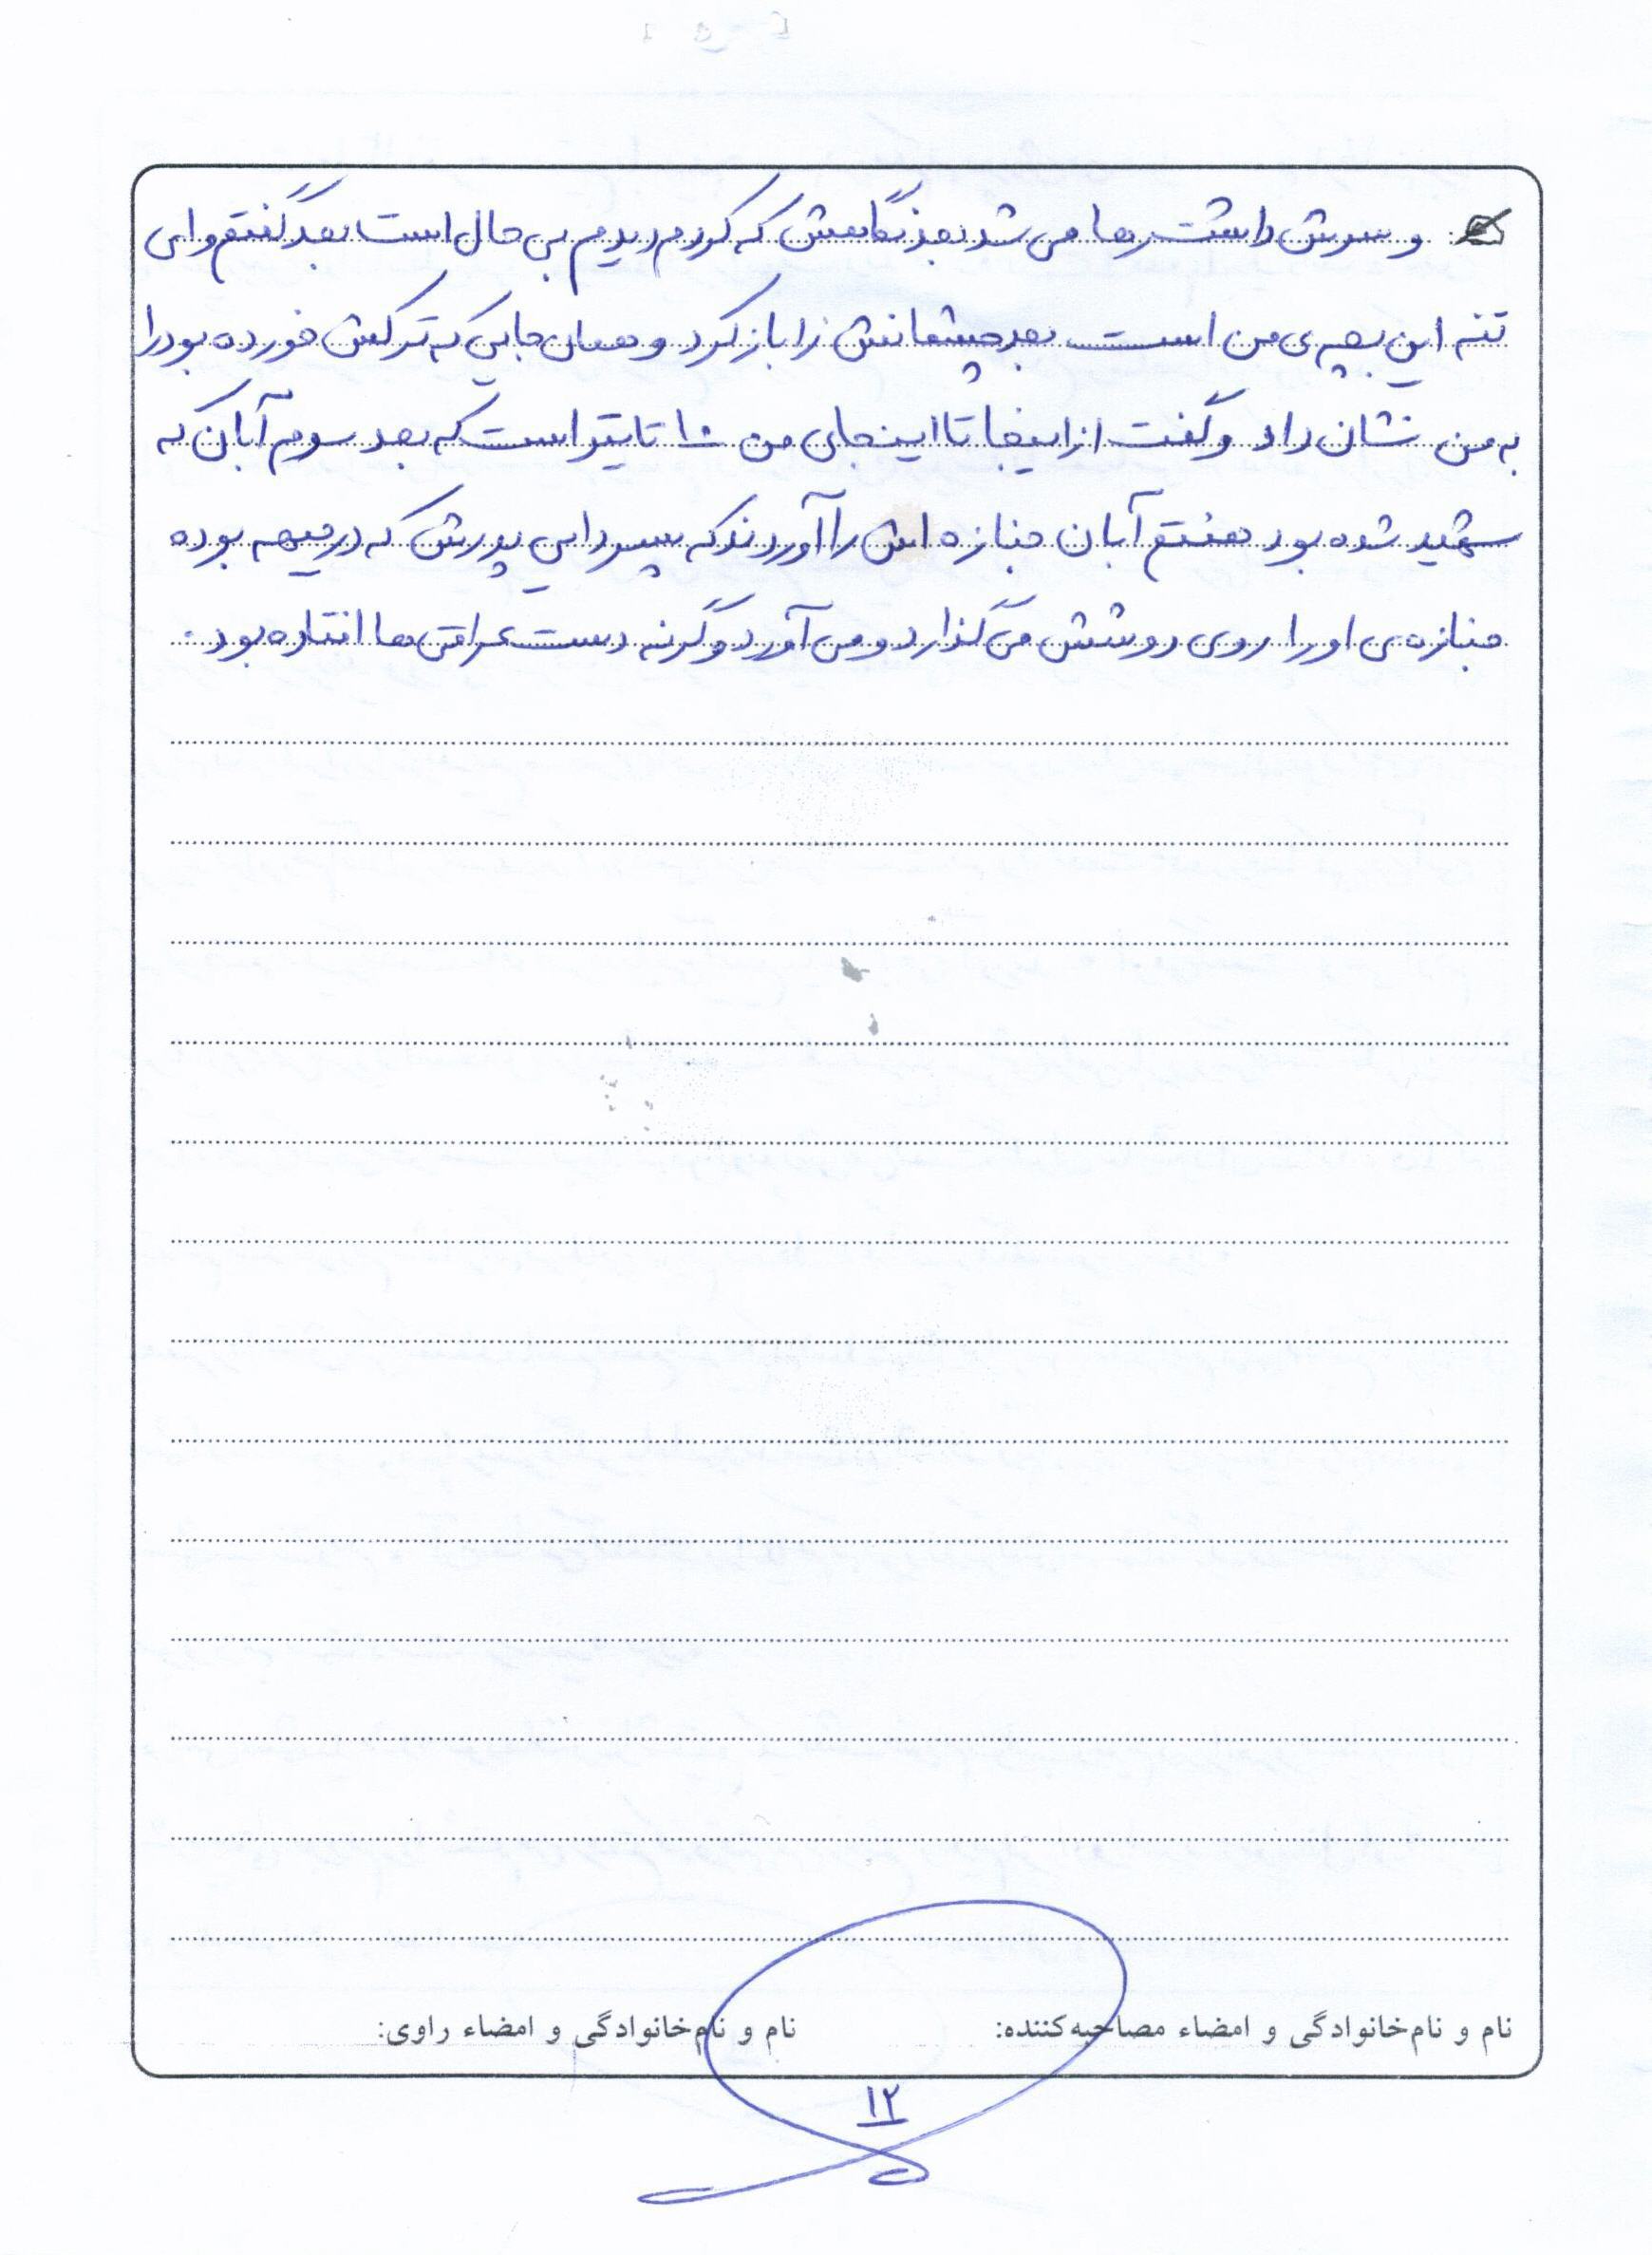 و سرش داشت رها می شد بعد نگاهش که کردم دیدم بی حال است بعد گفتم وای
تنه این بچه ی من است بعد چشمانش را باز کرد و همان جایی که ترکش خورده بود را
به من نشان داد و گفت از اینجا تا اینجای من ۱۰ تا تیر است که بعد سوم آبان که
شهید شده بود هفتم آبان جنازه اش را آوردند که پسر دایی پدرش که در جبهه بوده
جنازه ی او را روی دوشش می گذارد و می آورد وگرنه دست عراقی ها افتاده بود.
نام و نام‌خانوادگی و امضاء مصاحبه‌کننده: نام و نام‌خانوادگی و امضاء راوی:
۱۲